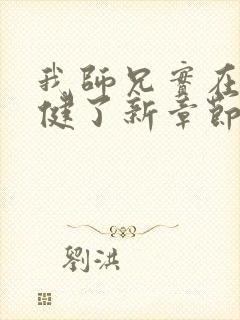 我師兄實在
健了新章節
劉洪